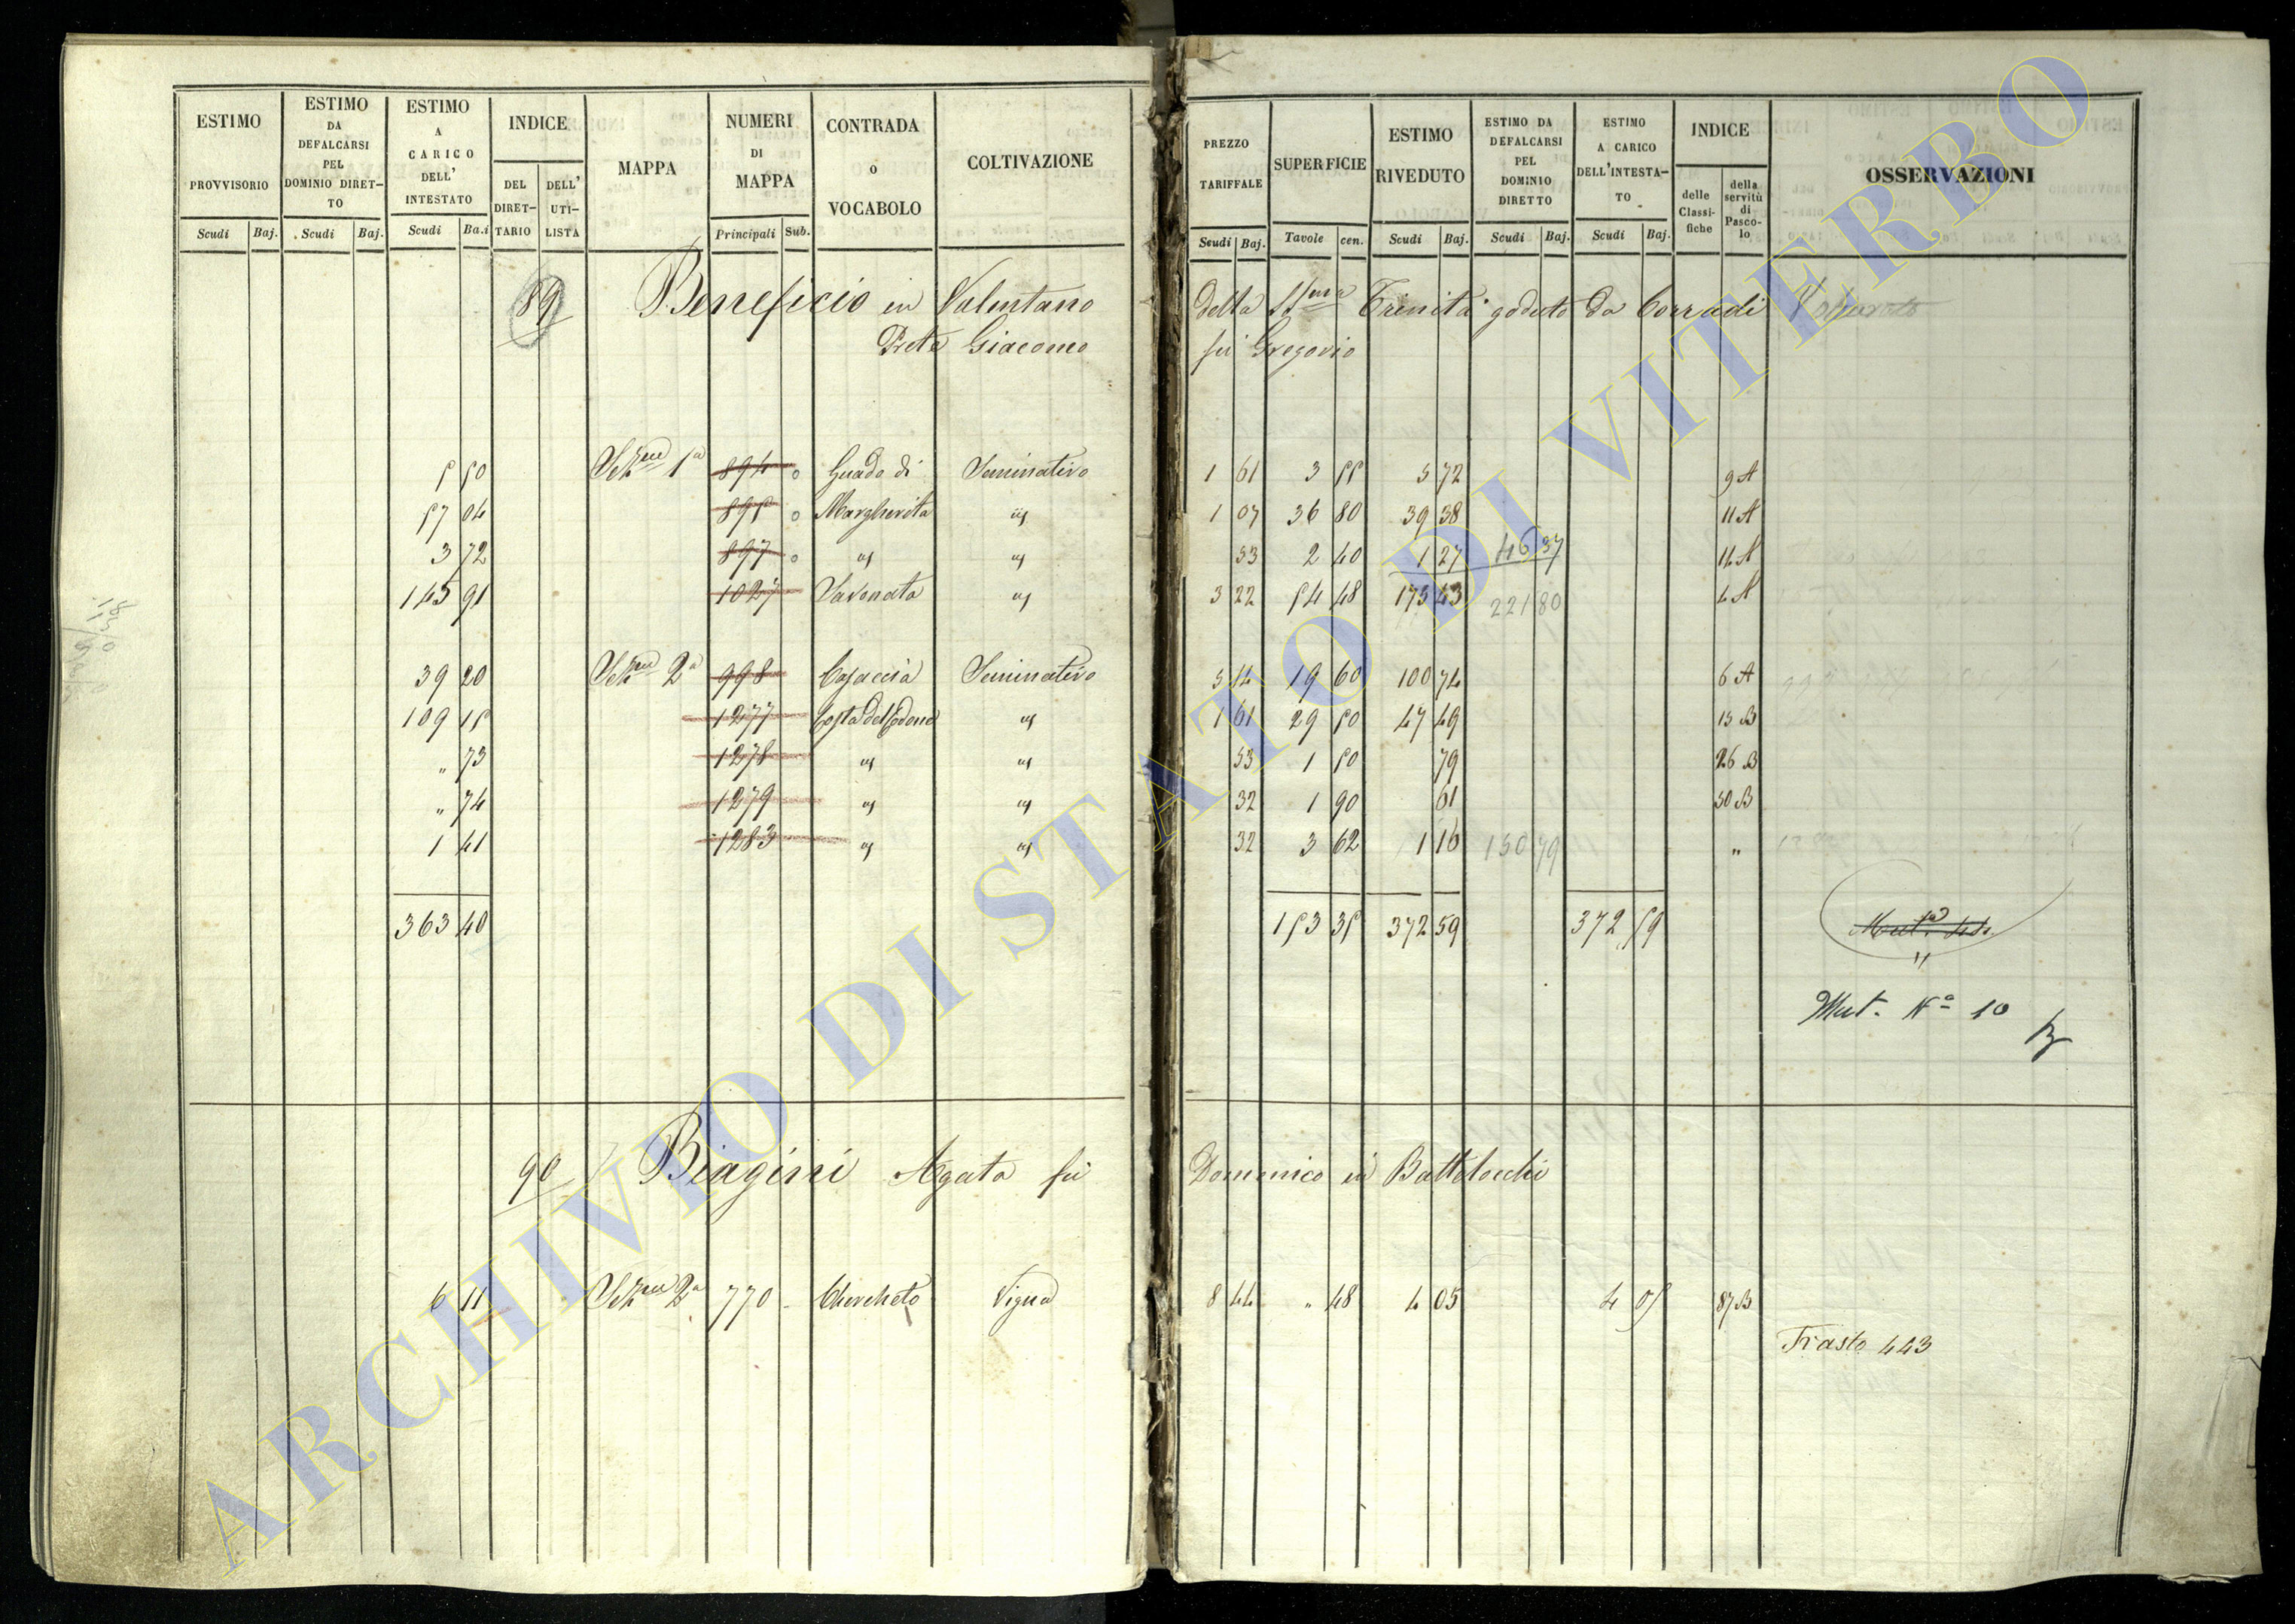 ESTIMO PROVVISORIO Scudi Baj.
ESTIMO DA DEFALCARSI PEL DOMINIO DIRET-TO Scudi Baj.
ESTIMO A CARICO DELL' INTESTATO Scudi Ba.i
INDICE DEL DIRET-TARIO DELL' UTI-LISTA
MAPPA
NUMERI DI MAPPA Principali Sub.
CONTRADA O VOCABOLO
COLTIVAZIONE
PREZZO TARIFFALE Scudi Baj.
SUPERFICIE Tavole cen.
ESTIMO RIVEDUTO Scudi Baj.
ESTIMO DA DEFALCARSI PEL DOMINIO DIRETTO Scudi Baj.
ESTIMO A CARICO DELL'INTESTA-TO Scudi Baj.
INDICE delle Classi-fiche della servitù di Pasco-lo
OSSERVAZIONI
89 Beneficio in Valentano della SSma Trinità goduto da Corradi
Prete Giacomo fù Gregorio
5 50 Sezne 1a 894 0 Guado di Seminativo 1 61 3 55 5 72 9 A
57 04 895 0 Margherita id 1 07 36 80 39 38 11 A
3 72 897 0 id id 53 2 40 1 27 46 37 14 A
143 91 1027 Savonata id 3 22 54 48 175 43 221 80 4 A
39 20 Sezne 2a 998 Casaccia Seminativo 5 14 19 60 100 74 6 A
109 15 1277 Costa del id 1 61 29 50 47 49 13 B
" 73 1278 id id 53 1 50 79 26 B
" 74 1279 id id 32 1 90 61 30 B
1 41 1283 id id 32 3 62 1 16 150 79 "
363 40 153 35 372 59 372 59
Mut. Nº 10
90 Biagini Agata fù Domenico in Battilocchi
6 11 Sezne 2a 770 Chercheto Vigna 8 44 " 48 4 05 4 05 87 B
Trasto 443
ARCHIVIO DI STATO DI VITERBO